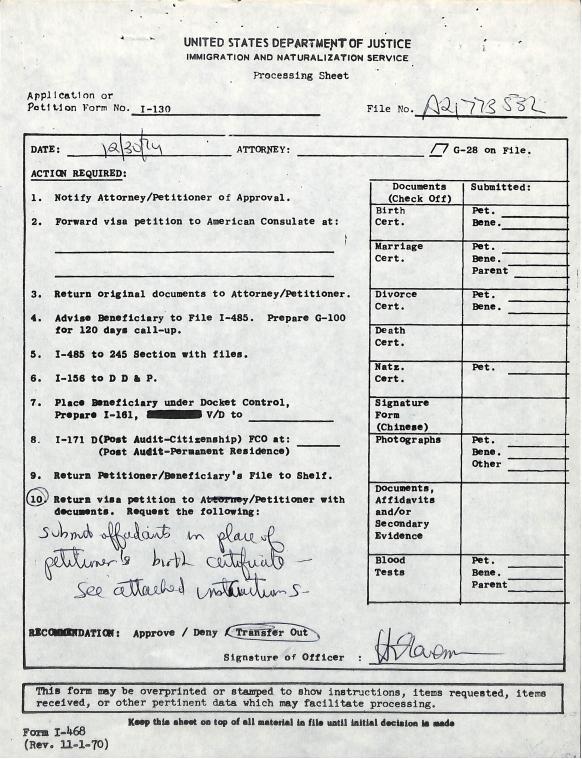 UNITED STATES DEPARTMENT OF JUSTICE
IMMIGRATION AND NATURALIZATION SERVICE
Processing Sheet
Application or
Petition Form No. I-130
File No. A21 773 532
DATE: 12/30/74 ATTORNEY: G-28 on File.
ACTION REQUIRED:
1. Notify Attorney/Petitioner of Approval.
2. Forward visa petition to American Consulate at:
3. Return original documents to Attorney/Petitioner.
4. Advise Beneficiary to File I-485. Prepare G-100
for 120 days call-up.
5. I-485 to 245 Section with files.
6. I-156 to D D & P.
7. Place Beneficiary under Docket Control,
Prepare I-161, V/D to
8. I-171 D(Post Audit-Citizenship) FCO at:
(Post Audit-Permanent Residence)
9. Return Petitioner/Beneficiary's File to Shelf.
10. Return visa petition to Attorney/Petitioner with
documents. Request the following:
Submit affidavits in place of
petitioner's birth certificate —
See attached instructions-
RECOMMENDATION: Approve / Deny / Transfer Out
Signature of Officer :
Documents Submitted:
(Check Off)
Birth Pet.
Cert. Bene.
Marriage Pet.
Cert. Bene.
Parent
Divorce Pet.
Cert. Bene.
Death
Cert.
Natz. Pet.
Cert.
Signature
Form
(Chinese)
Photographs Pet.
Bene.
Other
Documents,
Affidavits
and/or
Secondary
Evidence
Blood Pet.
Tests Bene.
Parent
This form may be overprinted or stamped to show instructions, items requested, items
received, or other pertinent data which may facilitate processing.
Keep this sheet on top of all material in file until initial decision is made
Form I-468
(Rev. 11-1-70)